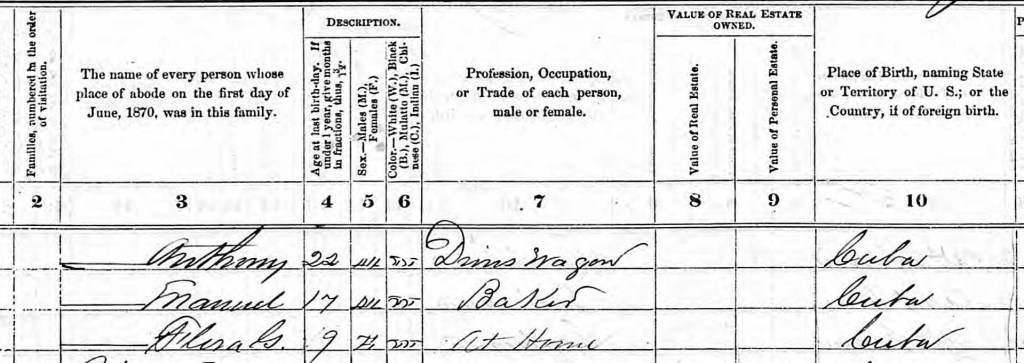 DESCRIPTION.
VALUE OF REAL ESTATE OWNED.
Families, numbered in the order of visitation.
The name of every person whose place of abode on the first day of June, 1870, was in this family.
Age at last birth-day. If under 1 year, give months in fractions, thus, 3/12.
Sex.—Males (M.), Females (F.)
Color.—White (W.), Black (B.), Mulatto (M.), Chinese (C.), Indian (I.)
Profession, Occupation, or Trade of each person, male or female.
Value of Real Estate.
Value of Personal Estate.
Place of Birth, naming State or Territory of U. S.; or the Country, if of foreign birth.
2 3 4 5 6 7 8 9 10
Anthony 22 M W Drives Wagon Cuba
Emanuel 17 M W Baker Cuba
9 F W At Home Cuba